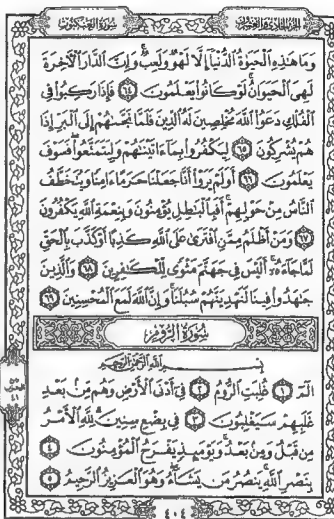 الجزء الحادي والعشرون سورة العنكبوت
وَمَا هَٰذِهِ ٱلْحَيَوٰةُ ٱلدُّنْيَآ إِلَّا لَهْوٌ وَلَعِبٌ ۚ وَإِنَّ ٱلدَّارَ ٱلْأَخِرَةَ
لَهِىَ ٱلْحَيَوَانُ ۚ لَوْ كَانُوا۟ يَعْلَمُونَ ٦٤ فَإِذَا رَكِبُوا۟ فِى
ٱلْفُلْكِ دَعَوُا۟ ٱللَّهَ مُخْلِصِينَ لَهُ ٱلدِّينَ فَلَمَّا نَجَّىٰهُمْ إِلَى ٱلْبَرِّ إِذَا
هُمْ يُشْرِكُونَ ٦٥ لِيَكْفُرُوا۟ بِمَآ ءَاتَيْنَٰهُمْ وَلِيَتَمَتَّعُوا۟ ۖ فَسَوْفَ
يَعْلَمُونَ ٦٦ أَوَلَمْ يَرَوْا۟ أَنَّا جَعَلْنَا حَرَمًا ءَامِنًا وَيُتَخَطَّفُ
ٱلنَّاسُ مِنْ حَوْلِهِمْ ۚ أَفَبِٱلْبَٰطِلِ يُؤْمِنُونَ وَبِنِعْمَةِ ٱللَّهِ يَكْفُرُونَ
٦٧ وَمَنْ أَظْلَمُ مِمَّنِ ٱفْتَرَىٰ عَلَى ٱللَّهِ كَذِبًا أَوْ كَذَّبَ بِٱلْحَقِّ
لَمَّا جَآءَهُۥٓ ۚ أَلَيْسَ فِى جَهَنَّمَ مَثْوًى لِّلْكَٰفِرِينَ ٦٨ وَٱلَّذِينَ
جَٰهَدُوا۟ فِينَا لَنَهْدِيَنَّهُمْ سُبُلَنَا ۚ وَإِنَّ ٱللَّهَ لَمَعَ ٱلْمُحْسِنِينَ ٦٩
سُورَةُ الرُّومِ
بِسْمِ ٱللَّهِ ٱلرَّحْمَٰنِ ٱلرَّحِيمِ
الٓمٓ ١ غُلِبَتِ ٱلرُّومُ ٢ فِىٓ أَدْنَى ٱلْأَرْضِ وَهُم مِّنۢ بَعْدِ
غَلَبِهِمْ سَيَغْلِبُونَ ٣ فِى بِضْعِ سِنِينَ ۗ لِلَّهِ ٱلْأَمْرُ
مِن قَبْلُ وَمِنۢ بَعْدُ ۚ وَيَوْمَئِذٍ يَفْرَحُ ٱلْمُؤْمِنُونَ ٤
بِنَصْرِ ٱللَّهِ ۚ يَنصُرُ مَن يَشَآءُ ۖ وَهُوَ ٱلْعَزِيزُ ٱلرَّحِيمُ ٥
٤٠٤